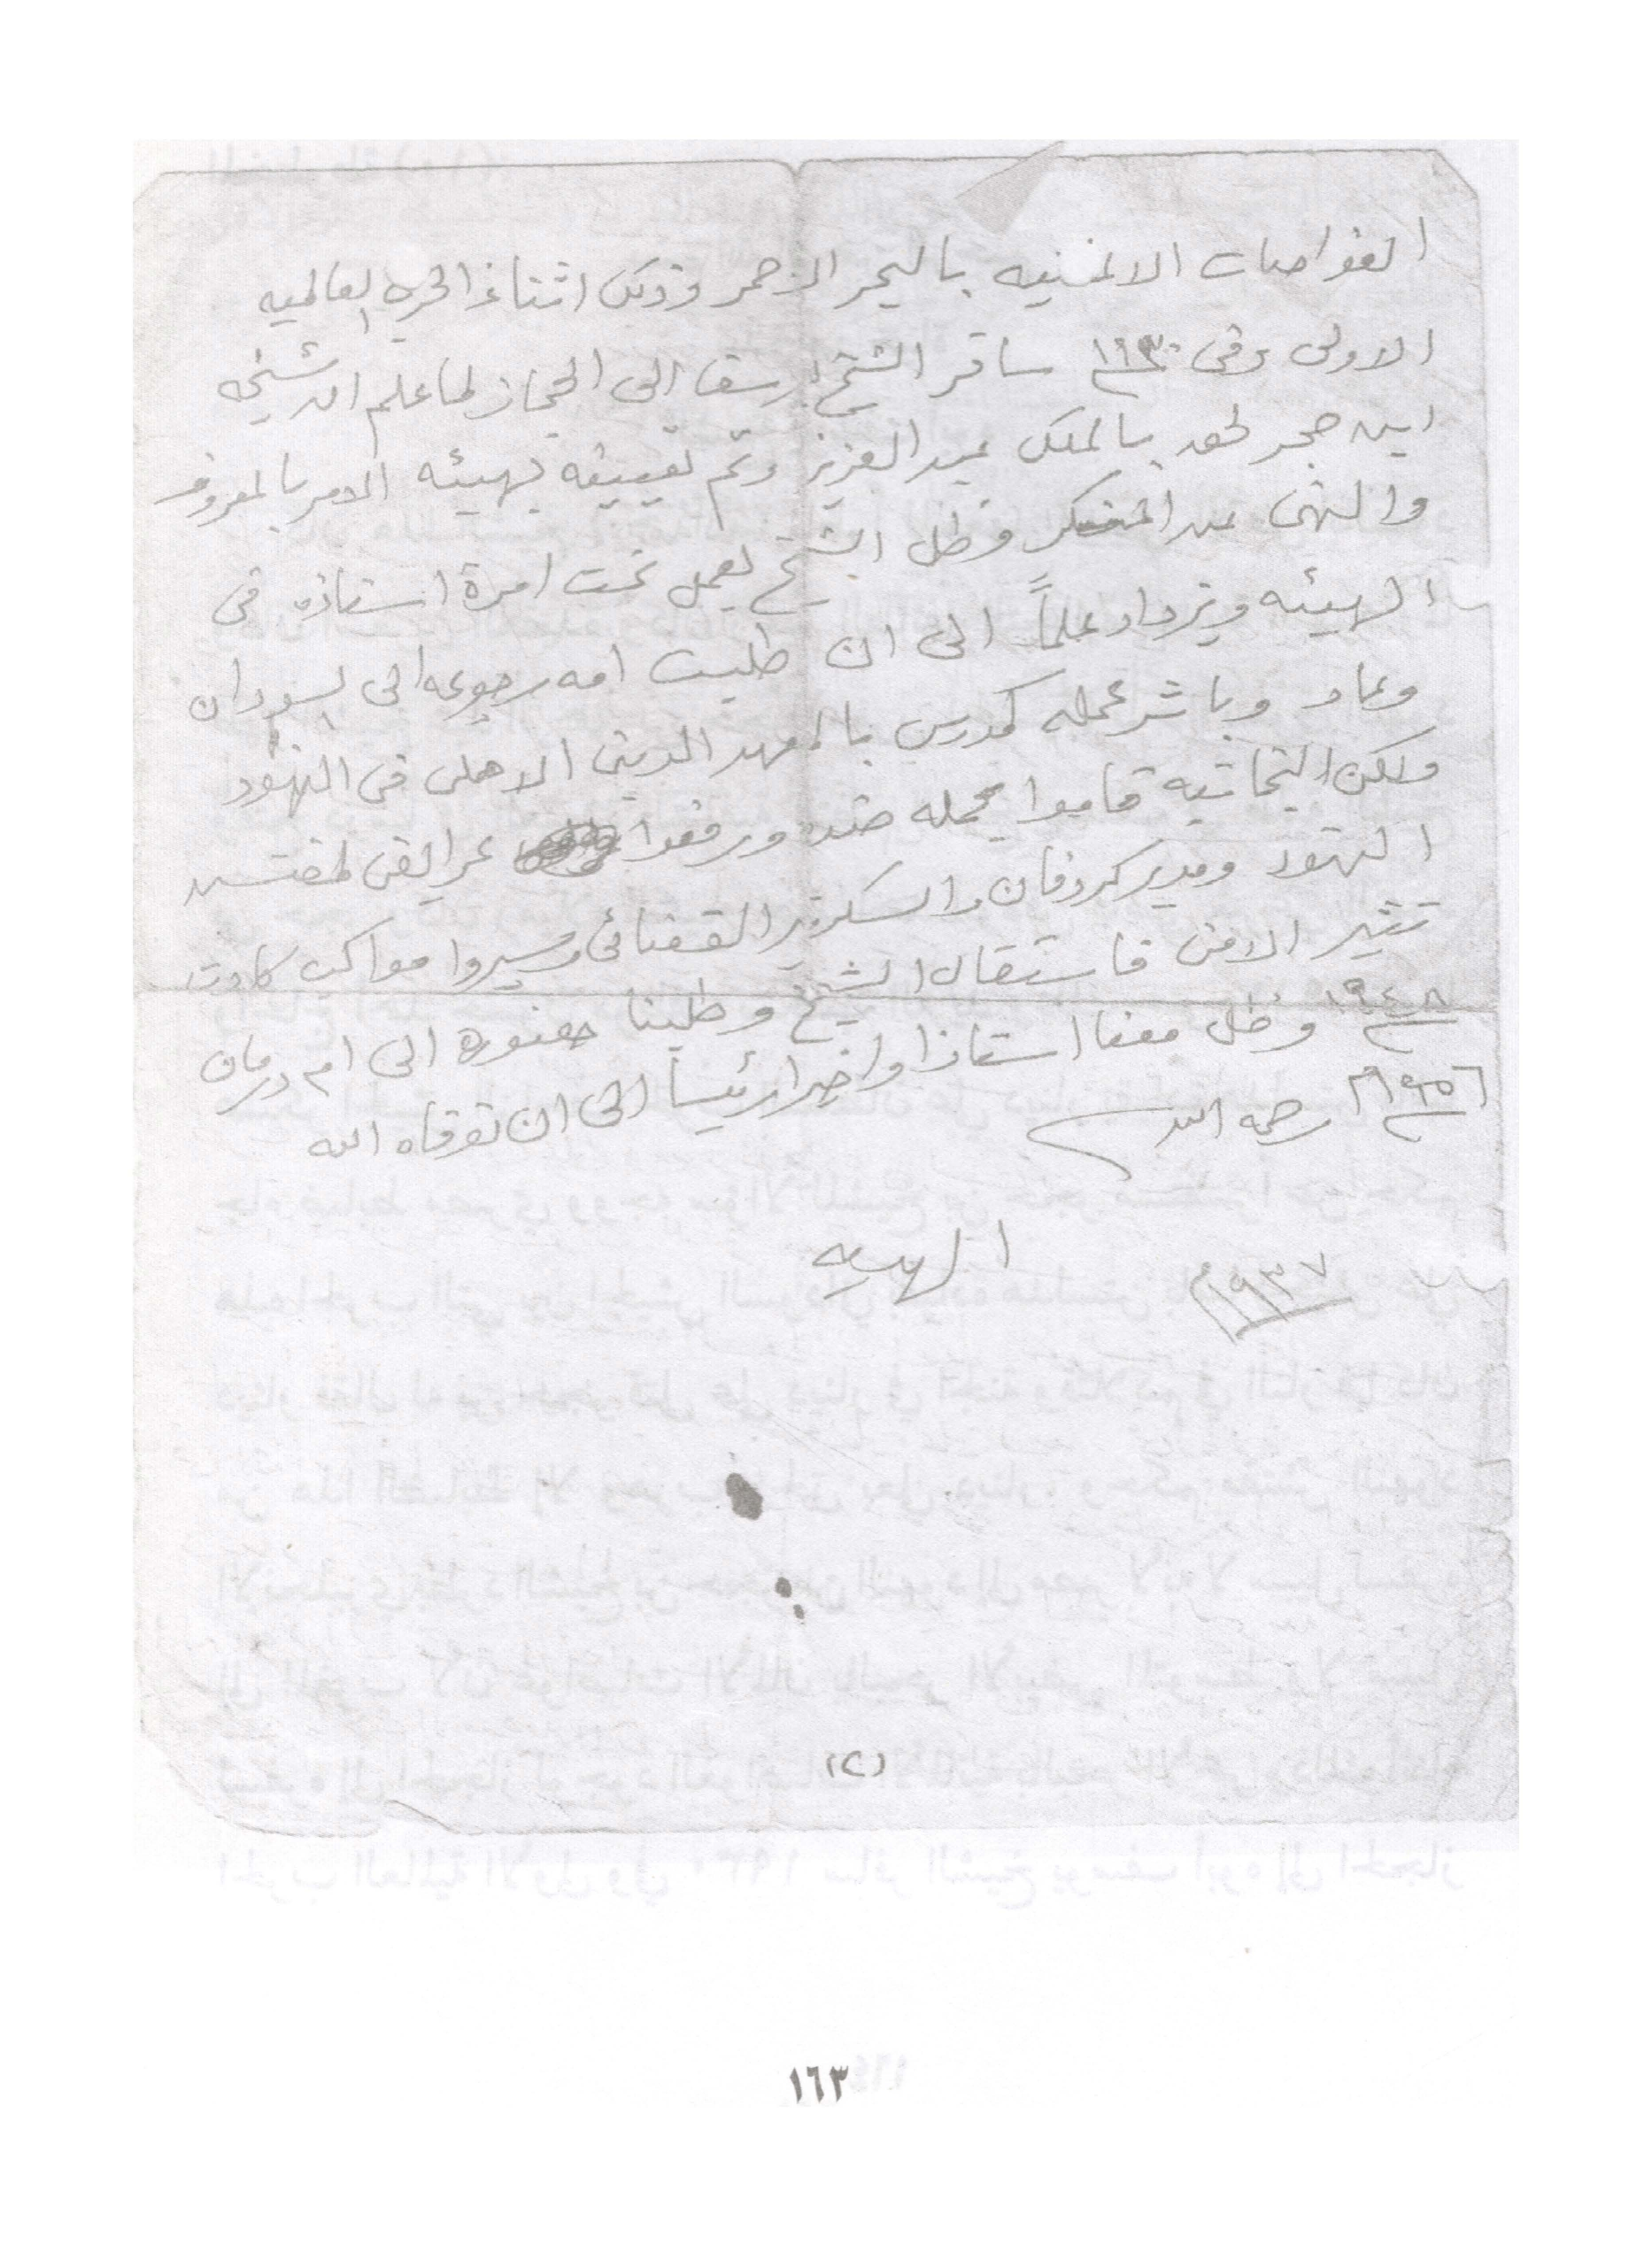 الغواصات الالمنيه بالبحر الاحمر وذلك اثناء الحرب العالميه
الاولى وفى ١٩٣٠م سافر الشيخ يوسف الى الحجاز لما علم ان شيخه
ابن حجر لحق بالملك عبد العزيز وتم تعيينه بهيئه الامر بالمعروف
والنهى عن المنكر وظل الشيخ يعمل تحت امرة استاذه فى
الهيئه ويزداد علماً الى ان طلبت امه رجوعه الى السودان
وعاد وباشر عمله كمدرس بالمعهد الدينى الاهلى فى النهود
ولكن التجانيه قاموا بحمله ضده ورفعوا عرائض لمفتش
النهود ومدير كردفان والسكرتير القضائى وسيروا مواكب كادت
تثير الامن فاستقال الشيخ وطلبنا حضوره الى ام درمان
١٩٤٨م وظل معنا استاذا واخيرا رئيسا الى ان توفاه الله
١٩٥٦م رحمه الله
الهديه
١٩٣٧م
(٢)
١٦٣